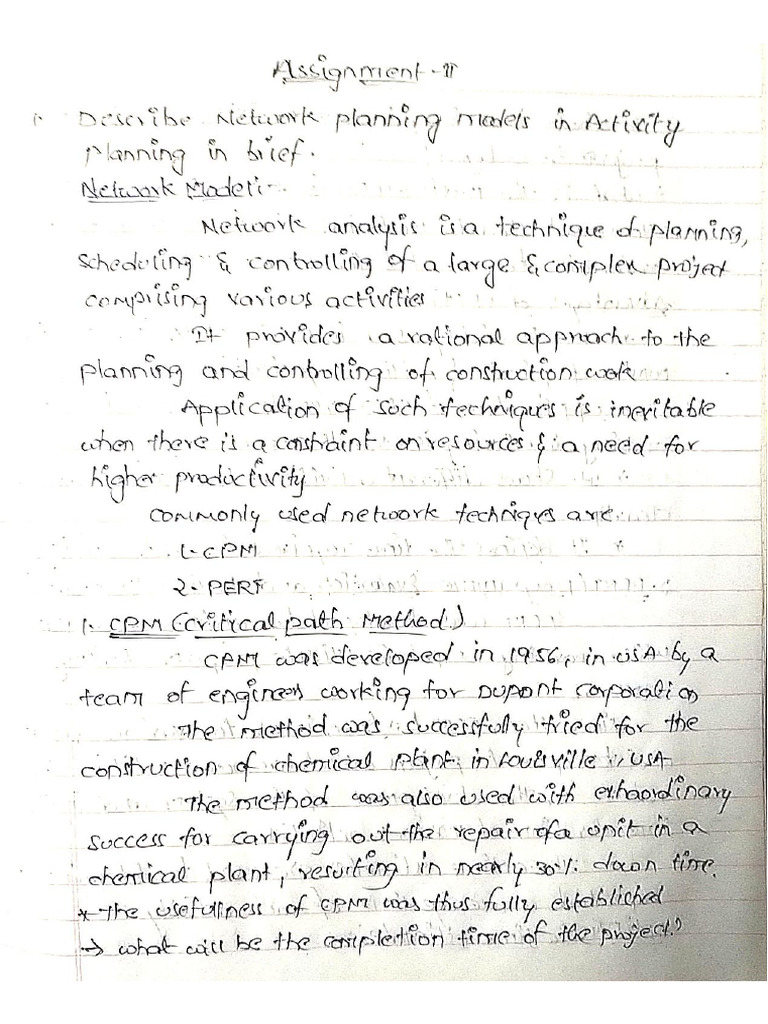 Assignment - II
1. Describe Network planning models in Activity
planning in brief.
Network Model:-
Network analysis is a technique of planning,
scheduling & controlling of a large & complex project
comprising various activities
It provides a rational approach to the
planning and controlling of construction work
Application of such techniques is inevitable
when there is a constraint on resources & a need for
higher productivity
commonly used network techniques are
1. CPM
2. PERT
1. CPM (Critical path Method)
CPM was developed in 1956, in USA by a
team of engineers working for Dupont Corporation
The method was successfully tried for the
construction of chemical plant in Louisville, USA
The method was also used with extraordinary
success for carrying out the repair of a unit in a
chemical plant, resulting in nearly 30% down time.
* The usefullness of CPM was thus fully established
→ what will be the completion time of the project?